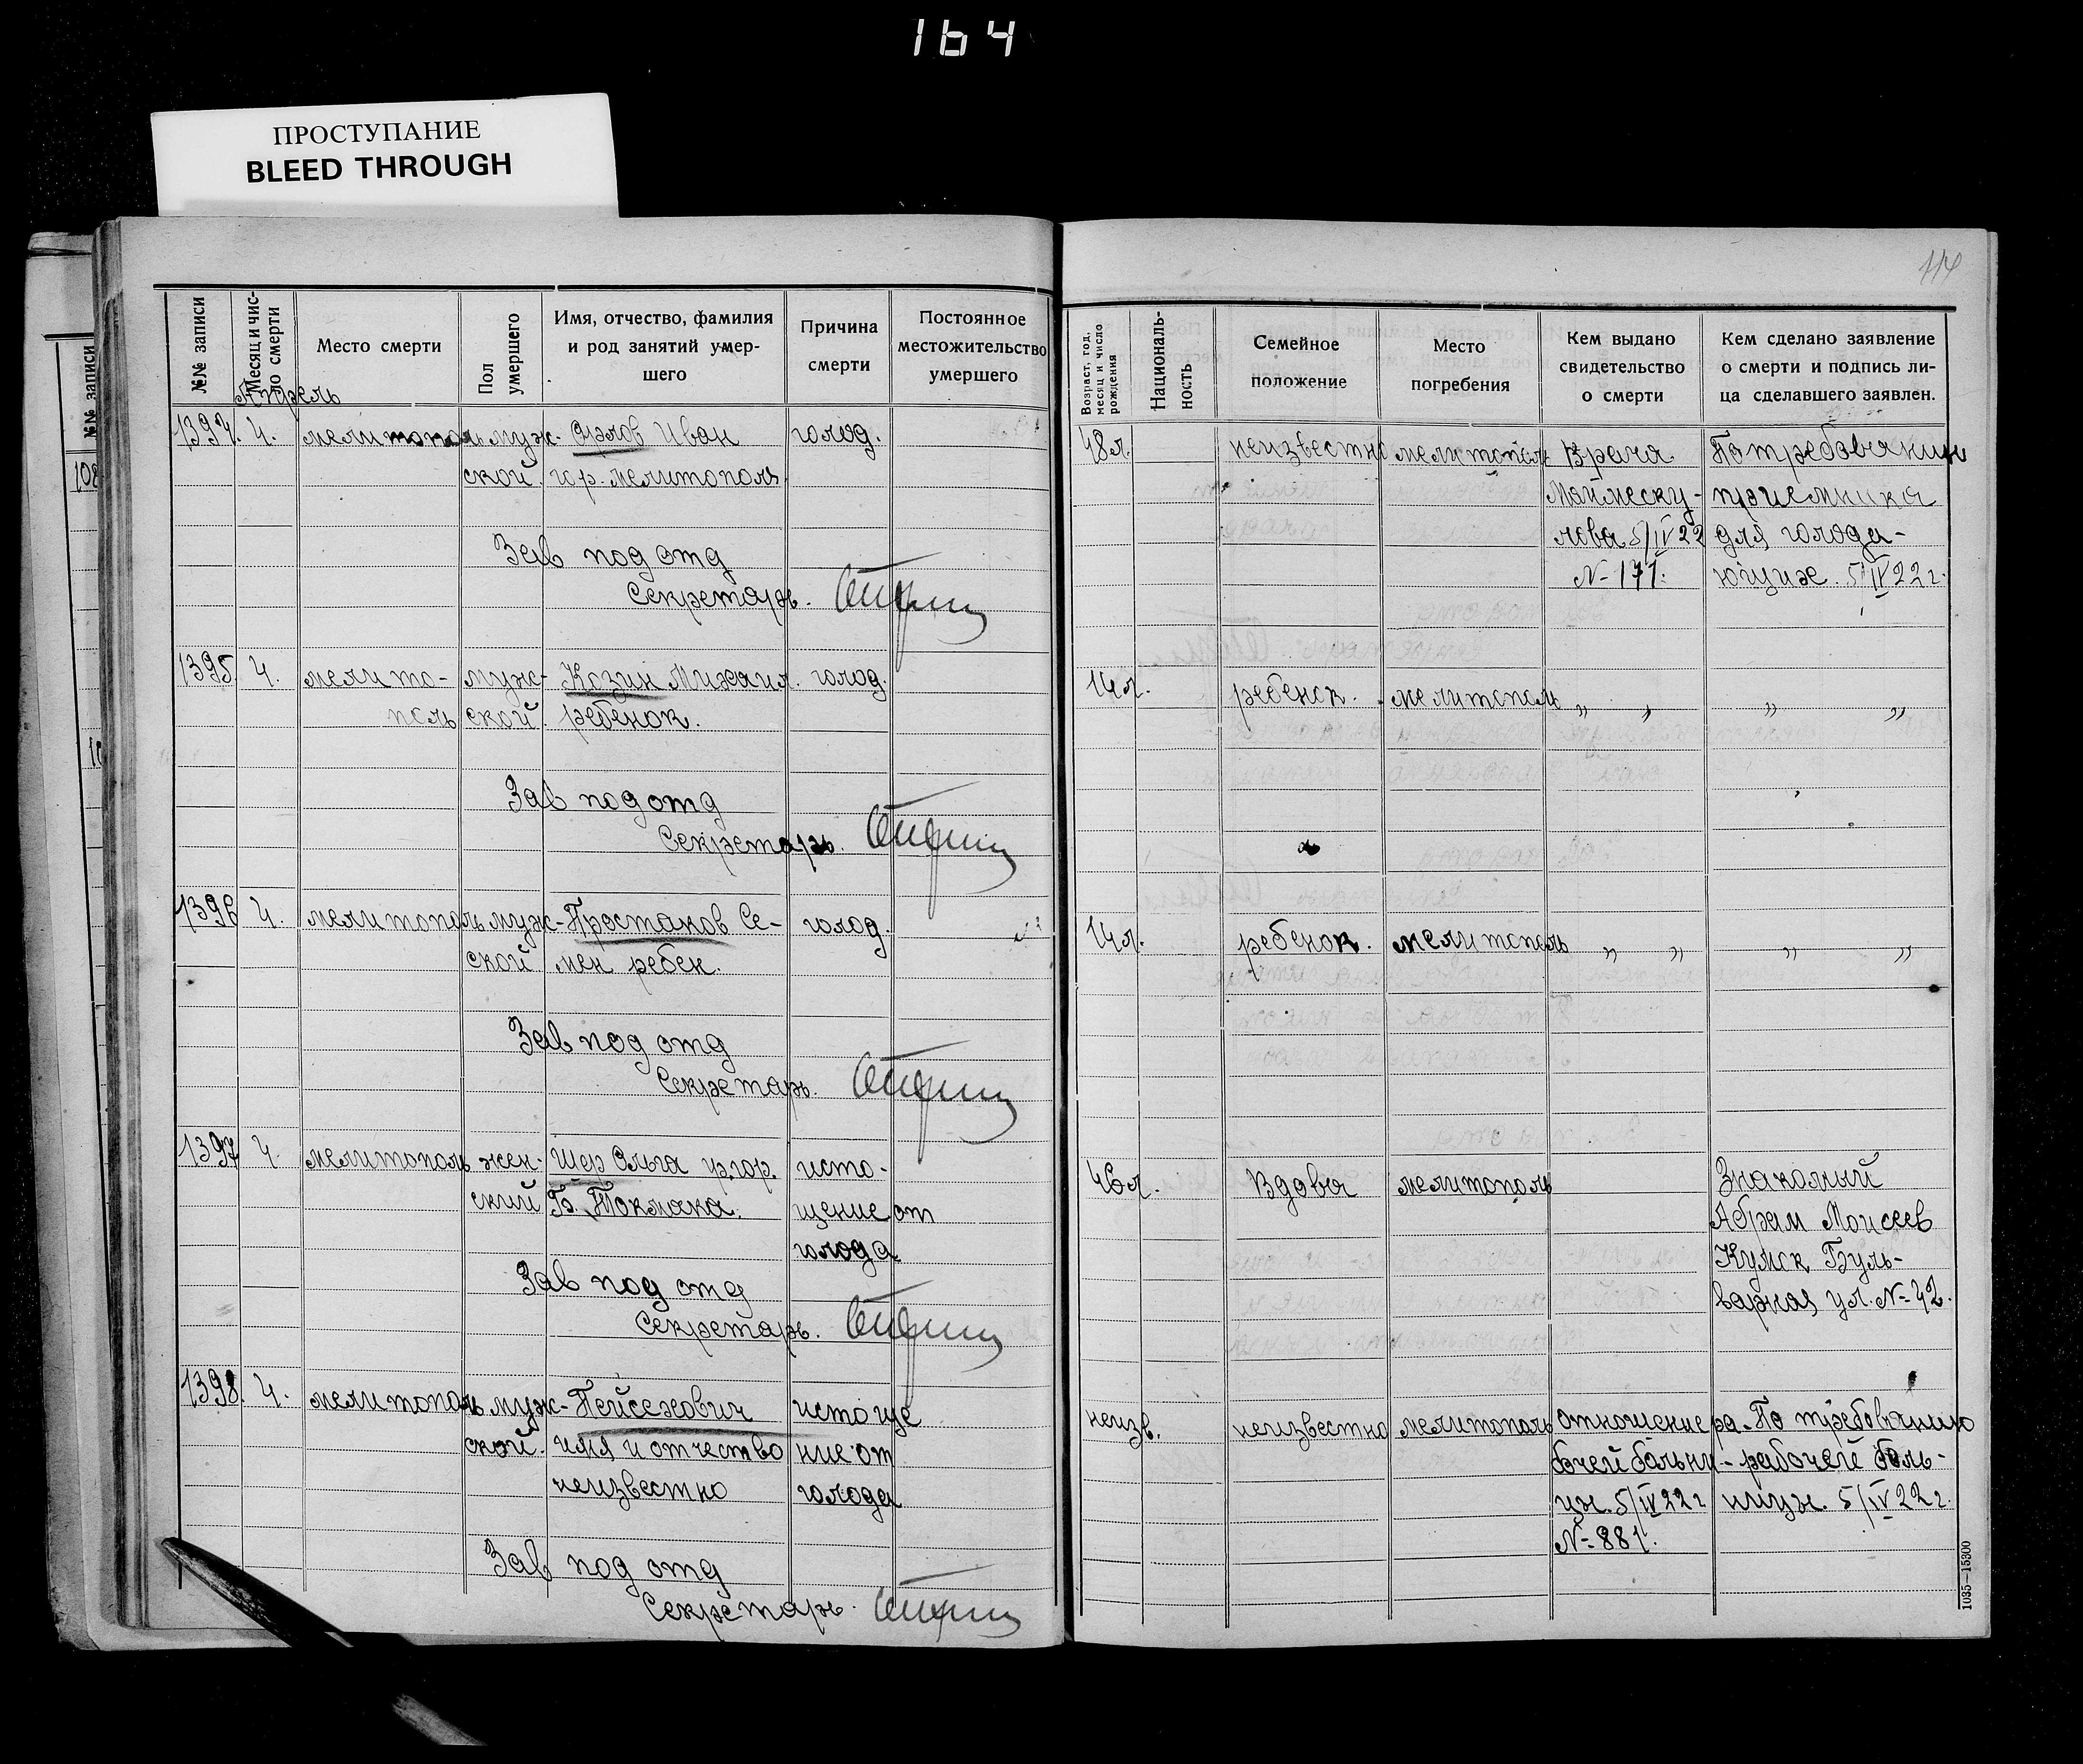 164
ПРОСТУПАНИЕ
BLEED THROUGH
114
№№ записи
Месяц и чис-
ло смерти
Место смерти
Пол
умершего
Имя, отчество, фамилия
и род занятий умер-
шего
Причина
смерти
Постоянное
местожительство
умершего
Возраст, год,
месяц и число
рождения
Националь-
ность
Семейное
положение
Место
погребения
Кем выдано
свидетельство
о смерти
Кем сделано заявление
о смерти и подпись ли-
ца сделавшего заявлен.
Апрель
1394. 4. мелитополь муж- Орлов Иван голод. 48л. неизвестно мелитополь Врача По требованию
ской. гор. мелитополь. приемника
лова 5/IV 22 для голода-
№ 171. ющих. 5/IV 22 г.
Зав под отд
Секретарь.
1395. 4. мелито- муж- Козин Михаил. голод. 14л. ребенок. мелитополь „ „ „ „
поль ской. ребенок.
Зав под отд
Секретарь.
1396 4. мелитополь муж- Простаков Се- голод. 14л. ребенок. мелитополь „ „ „ „
ской мен ребен.
Зав под отд
Секретарь.
1397 4. мелитополь жен- Шер Ольга гр. гор. исто- 46л. Вдова мелитополь Знакомый
ский Б. Токмака. щение от Абрам Моисеев
голода Кумск Буль-
варная ул. № 42.
Зав под отд
Секретарь.
1398. 4. мелитополь муж- Пейсехович истоще неизв. неизвестно мелитополь отношение ра- По требованию
ской. имя и отчество ние от бочей больни- рабочей боль-
неизвестно голода цы. 5/IV 22 г ницы. 5/IV 22 г.
№ 881.
Зав под отд
Секретарь.
1035—15300
№№ записи